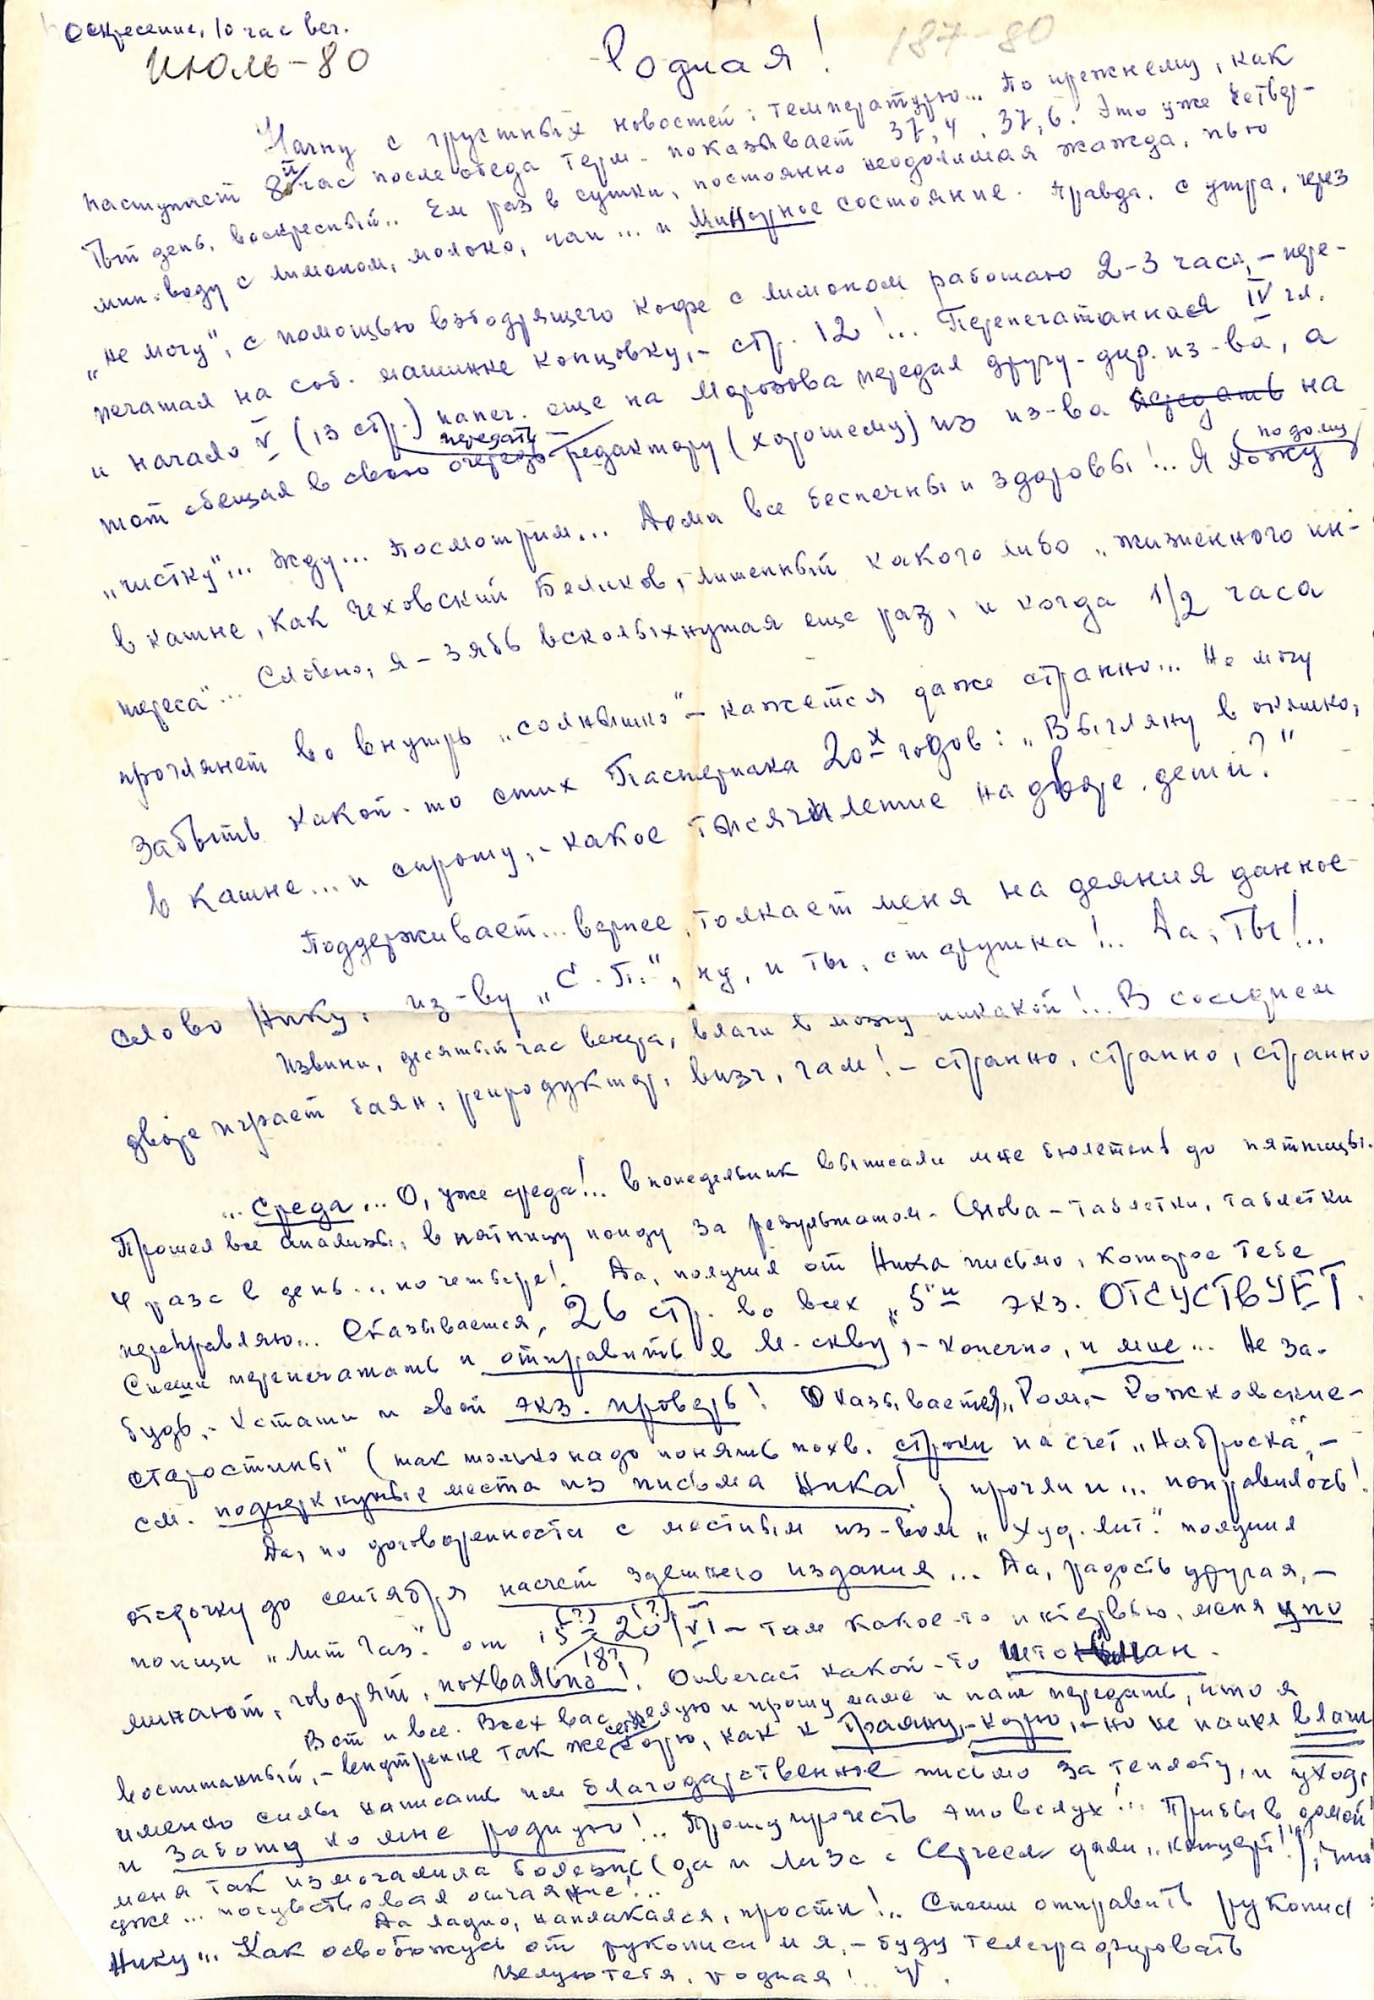 Воскресение, 10 час веч.
Июль-80
187-80
Родная!
Начну с грустных новостей: температурю... По прежнему, как
наступает 8й час после обеда терм. показывает 37,4, 37,6. Это уже четвер-
тый день, воскресный.. Ем раз в сутки, постоянно неодолимая жажда, пью
мин. воду с лимоном, молоко, чаи... и минорное состояние. Правда, с утра, через
„не могу", с помощью взбодрящего кофе с лимоном работаю 2-3 часа, - пере-
печатал на соб. машинке концовку, - стр. 12!... Перепечатанная IV гл.
и начало V (13 стр.) напеч. еще на Морозова передал другу - дир. из-ва, а
тот обещал в свою очередь передать редактору (хорошему) из из-ва передать на
„чистку"... Жду... Посмотрим... Дома все беспечны и здоровы!... Я хожу (по дому)
в кашне, как Чеховский Беликов, лишенный какого либо „жизненного ин-
тереса"... Словно, я - зябь всколыхнутая еще раз, и когда 1/2 часа
проглянет во внутрь „солнышко" - кажется даже странно... Не могу
забыть какой-то стих Пастернака 20х годов: „Выгляну в окошко,
в кашне... и спрошу, - какое тысячилетие на дворе, дети?"
Поддерживает... вернее, толкает меня на деяния данное
слово Нику, из-ву „С.П.", ну, и ты, старушка!.. Да, Ты!..
Извини, десятый час вечера, влаги в мозгу никакой!.. В соседнем
дворе играет баян, репродуктор, визг, гам! - странно, странно, странно
... Среда... О, уже среда!... В понедельник выписали мне бюлетень до пятницы.
Прошел все анализы, в пятницу пойду за результатом. Снова - таблетки, таблетки
4 раза в день... по четыре!. Да, получил от Ника письмо, которое тебе
переправляю... Оказывается, 26 стр. во всех „5и" экз. ОТСУСТВУЕТ.
Спеши перепечатать и отправить в М-скву", - конечно, и мне... Не за-
будь, - кстати и свой экз. проверь! Оказывается, „Ром. - Рожковские-
старостины" (так только надо понять похв. строки на счет „Наброска", -
см. подчеркнутые места из письма Ника!, прочли и... понравилось!
Да, по договоренности с местным из-вом „Худ. лит." получил
отсрочку до сентября насчет здешнего издания... Да, радость другая, -
поищи „Лит Газ." от 15(?) - 20(?)/VI - там какое-то интервью, меня упо
18?
минают, говорят, похвально! Отвечает какой-то Штокман.
Вот и все. Всех вас целую и прошу маме и папе передать, что я
воспитанный, - внутренне так же себя корю, как и Праяну, - корю, - но не нашел в лаш
имению силы написать им благодарственное письмо за теплоту, и уход,
и заботу ко мне родную!.. Прошу прочесть это вслух!... Прибыв домой
меня так измочалила болезнь (да и Лиза с Сергеем дали „концерт!"), что
уже... почувствовал отчаяние!...
Да ладно, наплакался, прости!.. Спеши отправить рукопись
Нику... Как освобожусь от рукописи и я, - буду телеграфировать
Целую тебя, родная!..